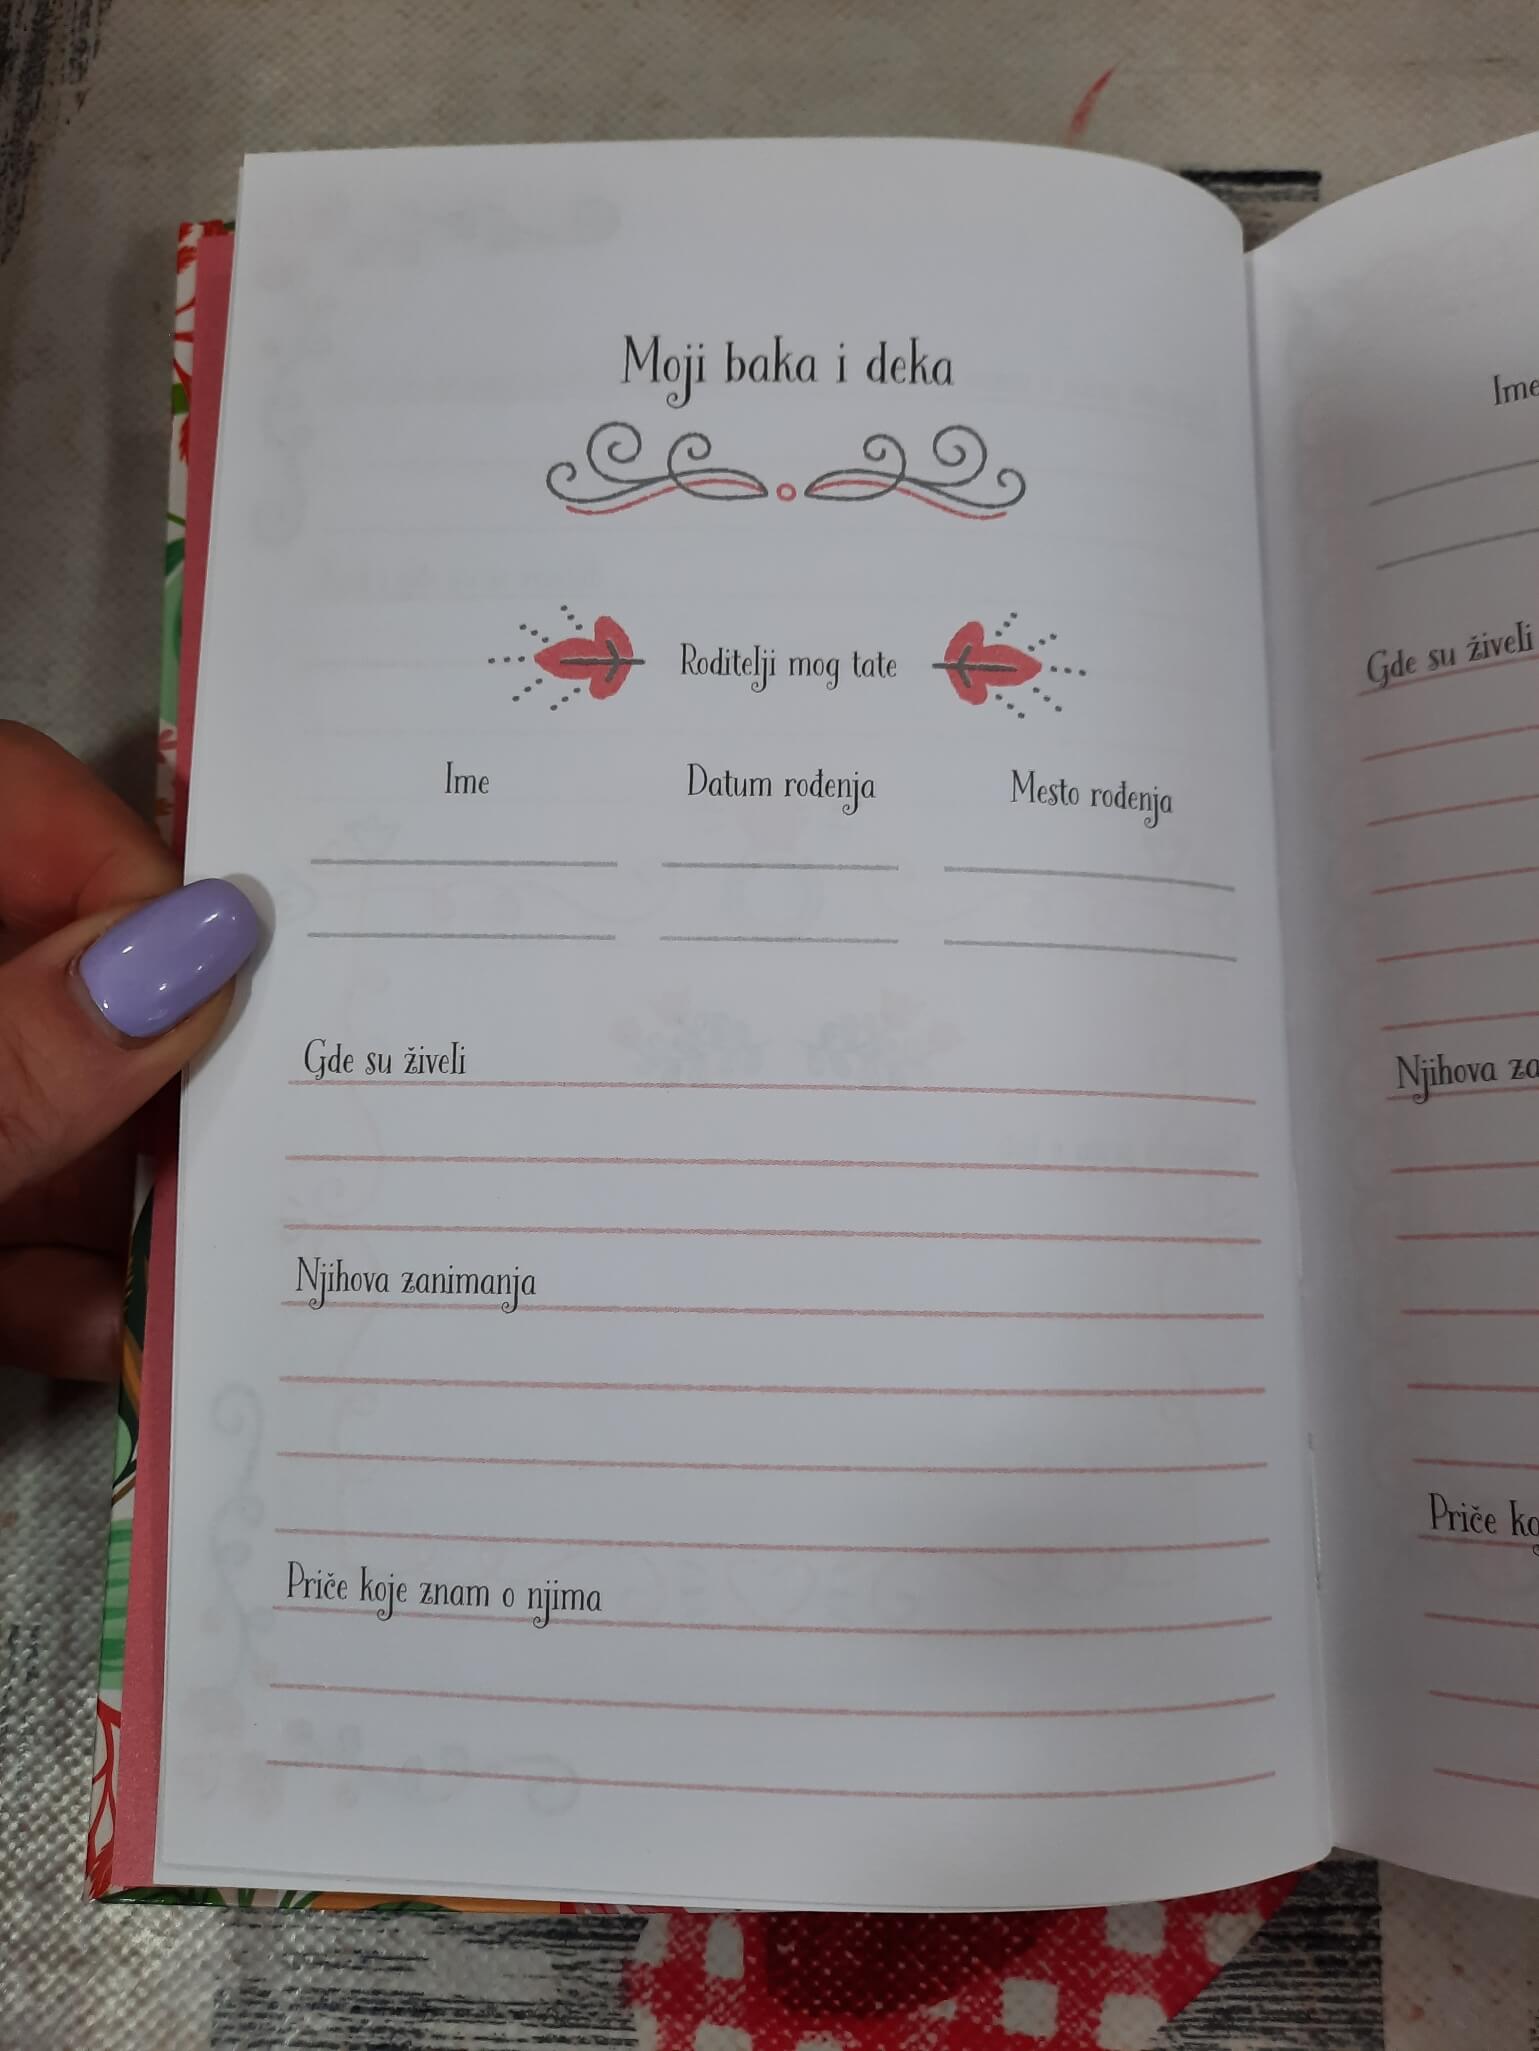 Moji baka i deka
Roditelji mog tate
Ime Datum rođenja Mesto rođenja
Gde su živeli
Njihova zanimanja
Priče koje znam o njima
Ime
Gde su živeli
Njihova
Priče